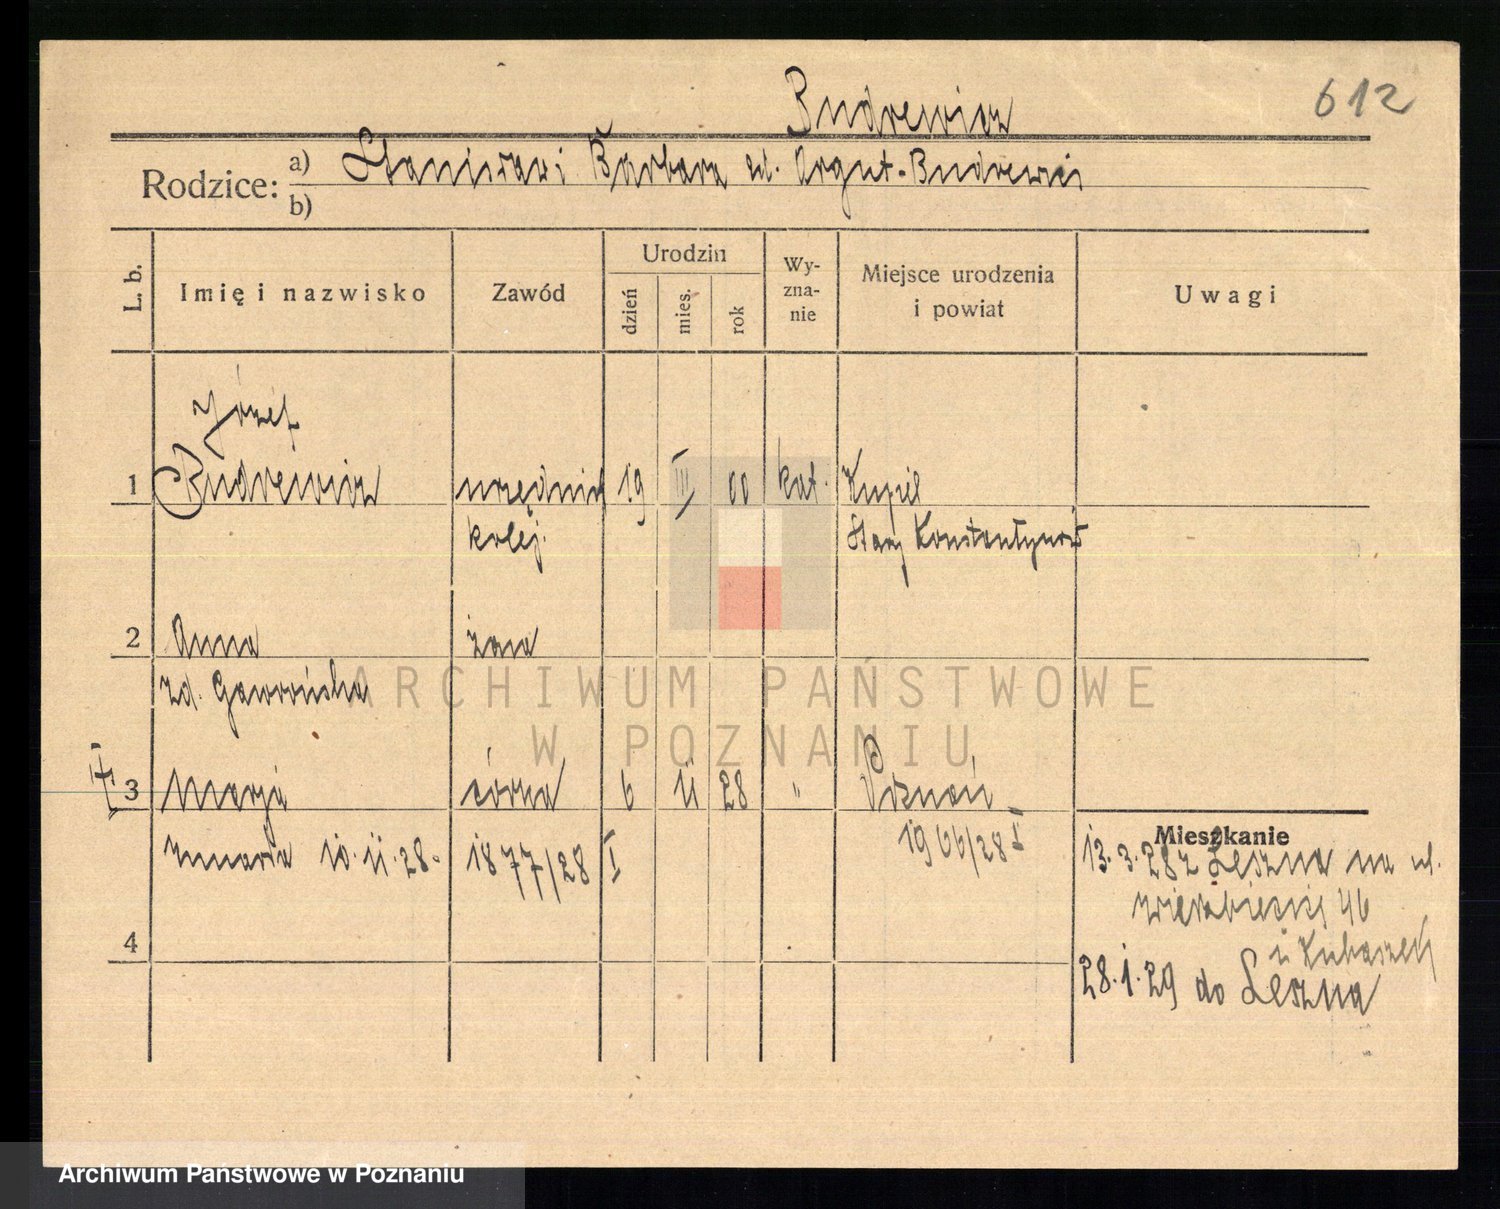 Budrewicz
612
Rodzice: a) Stanisław i Barbara zd. Orgut-Budrewicz
b)
L. b.
Imię i nazwisko
Zawód
Urodzin
dzień
mies.
rok
Wy-
zna-
nie
Miejsce urodzenia
i powiat
Uwagi
Józef
1 Budrewicz urzędnik 19 III 00 kat. Kupil
kolej. Stary Konstantynów
2 Anna żona
zd. Gaworońska
3 Marja córka 6 II 28 " Poznań
zmarła 10.II.28. 1877/28 I 1966/28 I
Mieszkanie
13.3.28 z Leszna na ul.
Wierzbięcicej 46
u Kubaszek
4
28.1.29 do Leszna
ARCHIWUM PAŃSTWOWE
W POZNANIU
Archiwum Państwowe w Poznaniu